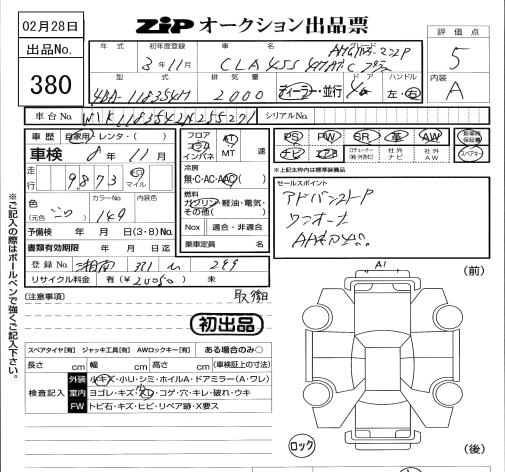 02月28日
ZIP オークション出品票
出品No.
380
評価点
5
内装
A
年式
初年度登録
車名
グレード
3年11月
CLA 45S
型式
排気量
ドア
ハンドル
4BA-118354M
2000
ディーラー・並行
左・右
車台No.
シリアルNo.
車歴
自家用・レンタ・( )
車検
8年11月
走行
9873
マイル
色
(元色 )
シロ
カラーNo.
149
内装色
予備検 年 月 日(3・8)No.
書類有効期限 年 月 日迄
登録No.
湘南 331 289
リサイクル料金 有(¥ ) 未
フロア
コラム
インパネ
AT
MT
速
冷房
無・C・AC・AAC
燃料
ガソリン・軽油・電気・
その他( )
Nox
適合・非適合
乗車定員
名
PS PW SR 革 AW
ナビ エアB
社外ナビ
社外AW
新車時保証書
スペアキー
※上記太枠内は標準装備品
セールスポイント
ワンオーナー
(注意事項)
初出品
スペアタイヤ[有] ジャッキ工具[有] AWロックキー[有] ある場合のみ○
長さ cm 幅 cm 高さ cm (車検証上の寸法)
検査記入
外装
小キズ・小リ・シミ・ホイルA・ドアミラー(A・ワレ)
室内
ヨゴレ・キズ・スレ・コゲ・穴・キレ・破れ・ウキ
FW
トビ石・キズ・ヒビ・リペア跡・X要ス
A1
(前)
(後)
ロック
※ご記入の際はボールペンで強くご記入下さい。